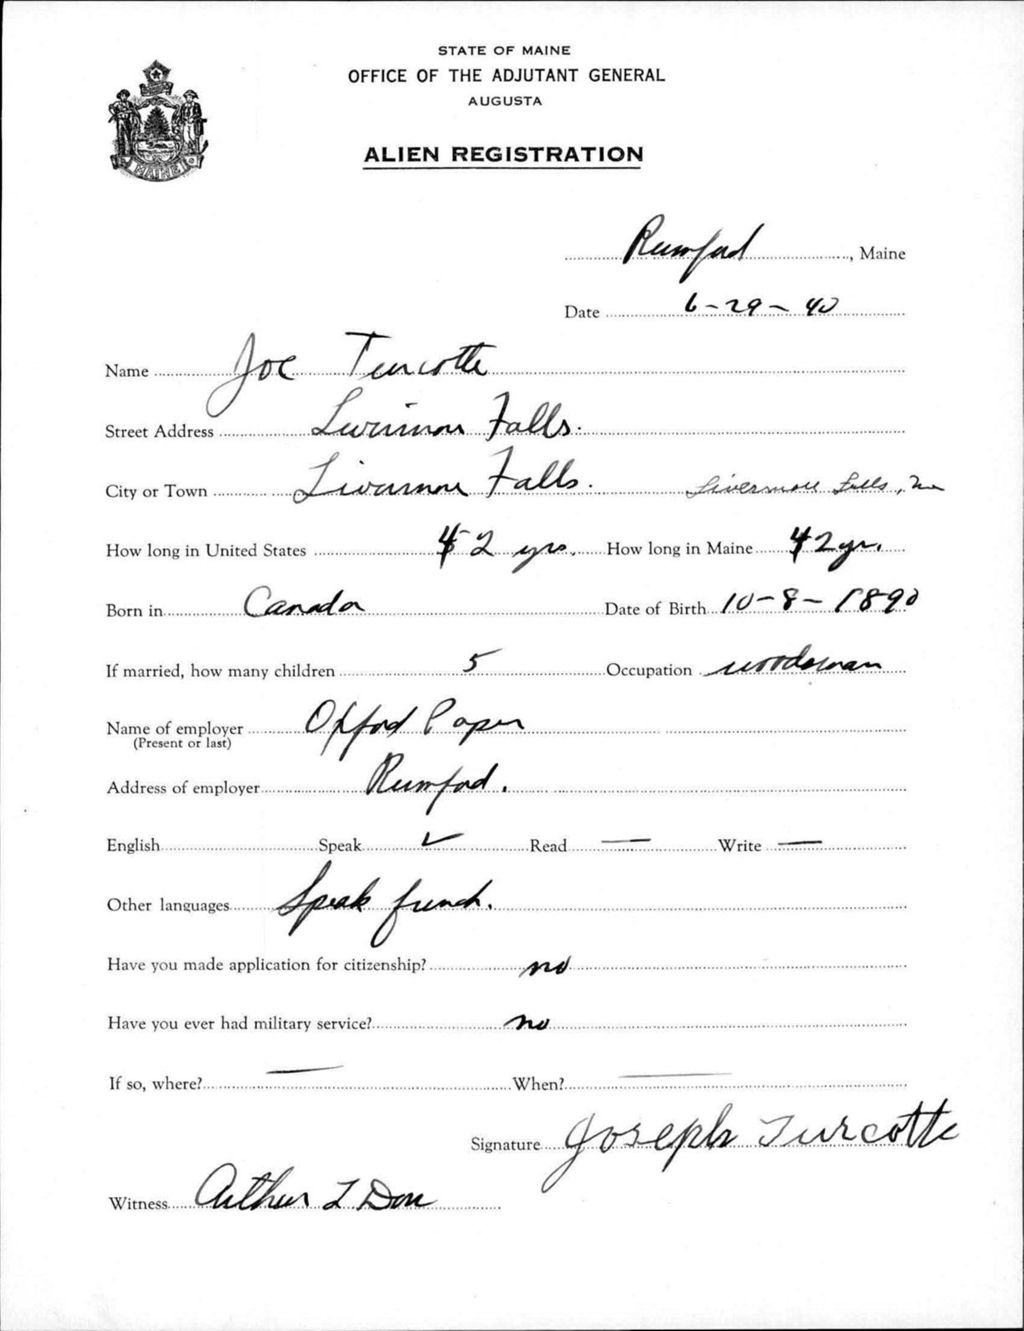 STATE OF MAINE
OFFICE OF THE ADJUTANT GENERAL
AUGUSTA
ALIEN REGISTRATION
MAINE
Rumford, Maine
Date 6-29-40
Name Joe Turcotte
Street Address Livermore Falls.
City or Town Livermore Falls. Livermore Falls, Me
How long in United States 42 yrs. How long in Maine 42 yr.
Born in Canada Date of Birth 10-8-1890
If married, how many children 5 Occupation woodsman
Name of employer Oxford Paper
(Present or last)
Address of employer Rumford.
English Speak ✓ Read — Write —
Other languages Speak french.
Have you made application for citizenship? no
Have you ever had military service? no
If so, where? — When? —
Signature Joseph Turcotte
Witness Arthur L